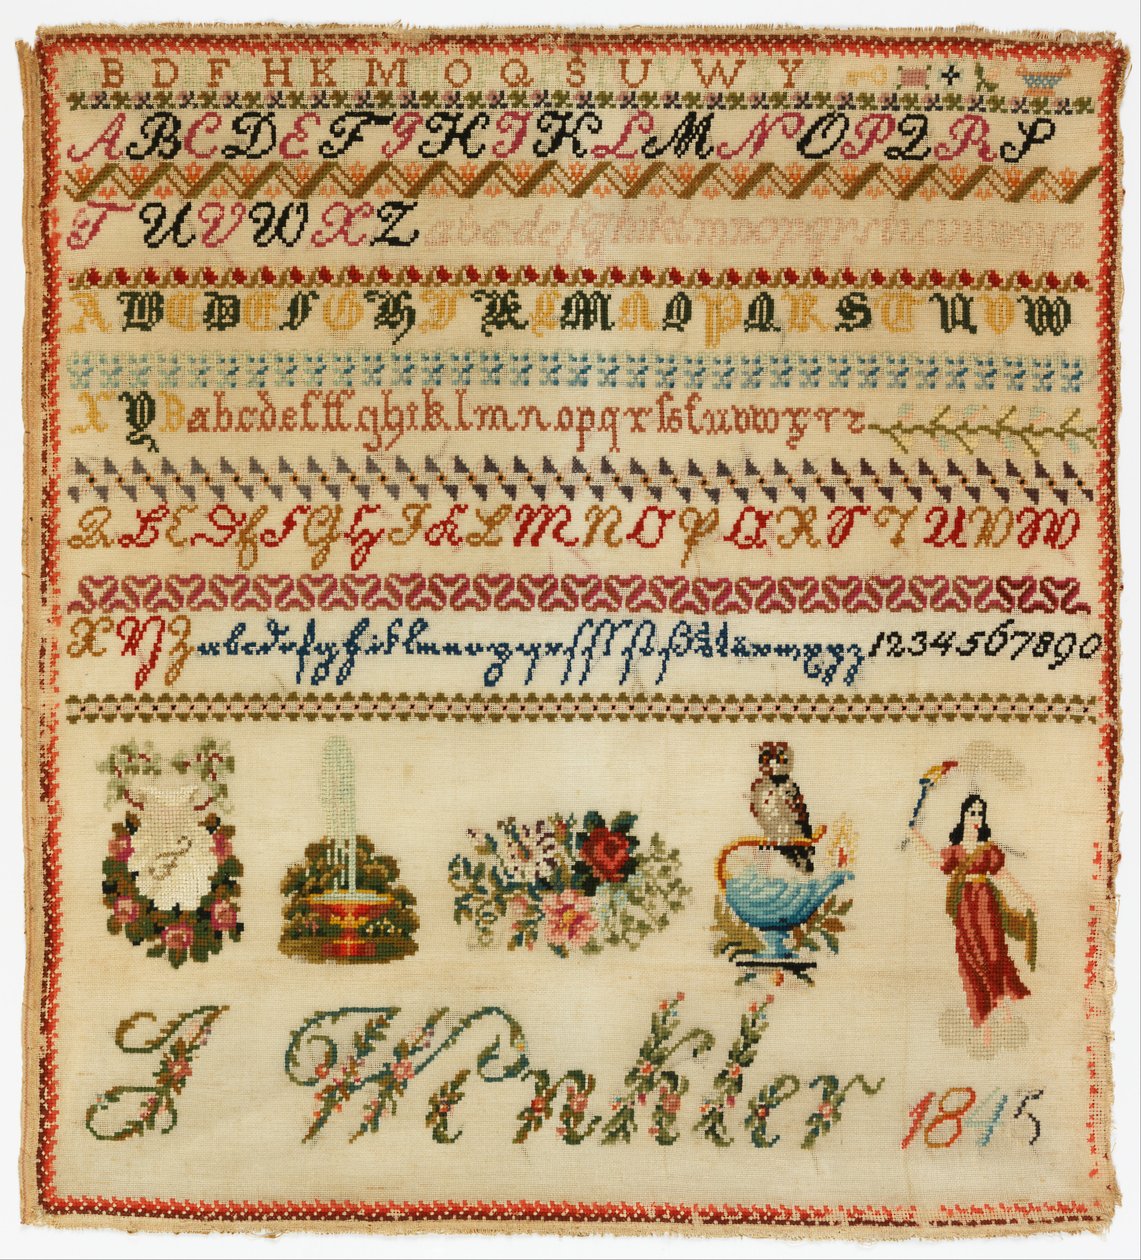 A B C D E F G H I K L M N O P Q R S T U V W X Y Z
A B C D E F G H I K L M N O P Q R S
T U V W X Z a b c d e f g h i k l m n o p q r s t u v w x y z
A B C D E F G H I K L M N O P Q R S T U V W
X Y Z a b c d e f ff g h i k l m n o p q r s t u v w x y z
A B C D E F G H I K L M N O P Q R S T U V W
X Y Z a b c d e f g h i k l m n o p q r 1 2 3 4 5 6 7 8 9 0
J Winkler 1845